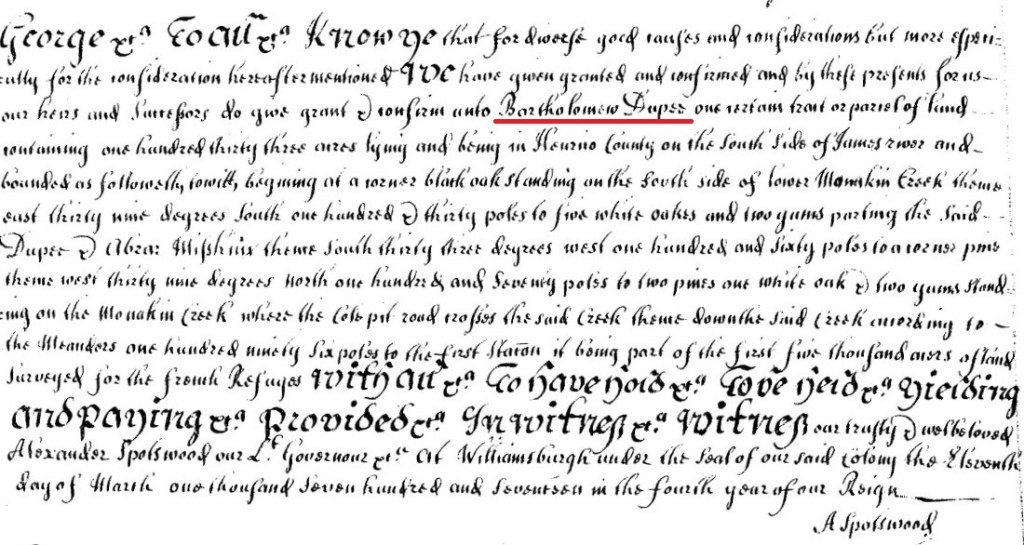 George &ca To all &ca Know ye that for diverse good causes and considerations but more especi-
ally for the consideration hereafter mentioned We have given granted and confirmed and by these presents for us
our heirs and Successors do give grant & confirm unto Bartholomew Dupee one certain tract or parcel of land
containing one hundred thirty three acres lying and being in Henrico County on the South Side of James river and
bounded as followeth, towitt, begining at a corner black oak standing on the South side of lower Monakin Creek thence
east thirty nine degrees South one hundred & thirty poles to five white oakes and two gums parting the said
Dupee & Abra: thence South thirty three degrees west one hundred and sixty poles to a corner pine
thence west thirty nine degrees north one hundred and Seventy poles to two pines one white oak & two gums stand-
ing on the Monakin Creek where the Cole pit road crosses the said Creek thence down the said Creek according to
the Meanders one hundred ninety Six poles to the first Station it being part of the first five thousand acers of land
Surveyed for the French Refuges With all &ca To have hold &ca To be held &ca Yielding
and Paying &ca Provided &ca In witness &ca Witness our trusty & welbeloved
Alexander Spotswood our Lt. Governour &ca At Williamsburgh under the Seal of our said Colony the Eleventh
day of March one thousand Seven hundred and Seventeen in the fourth year of our Reign
A Spotswood